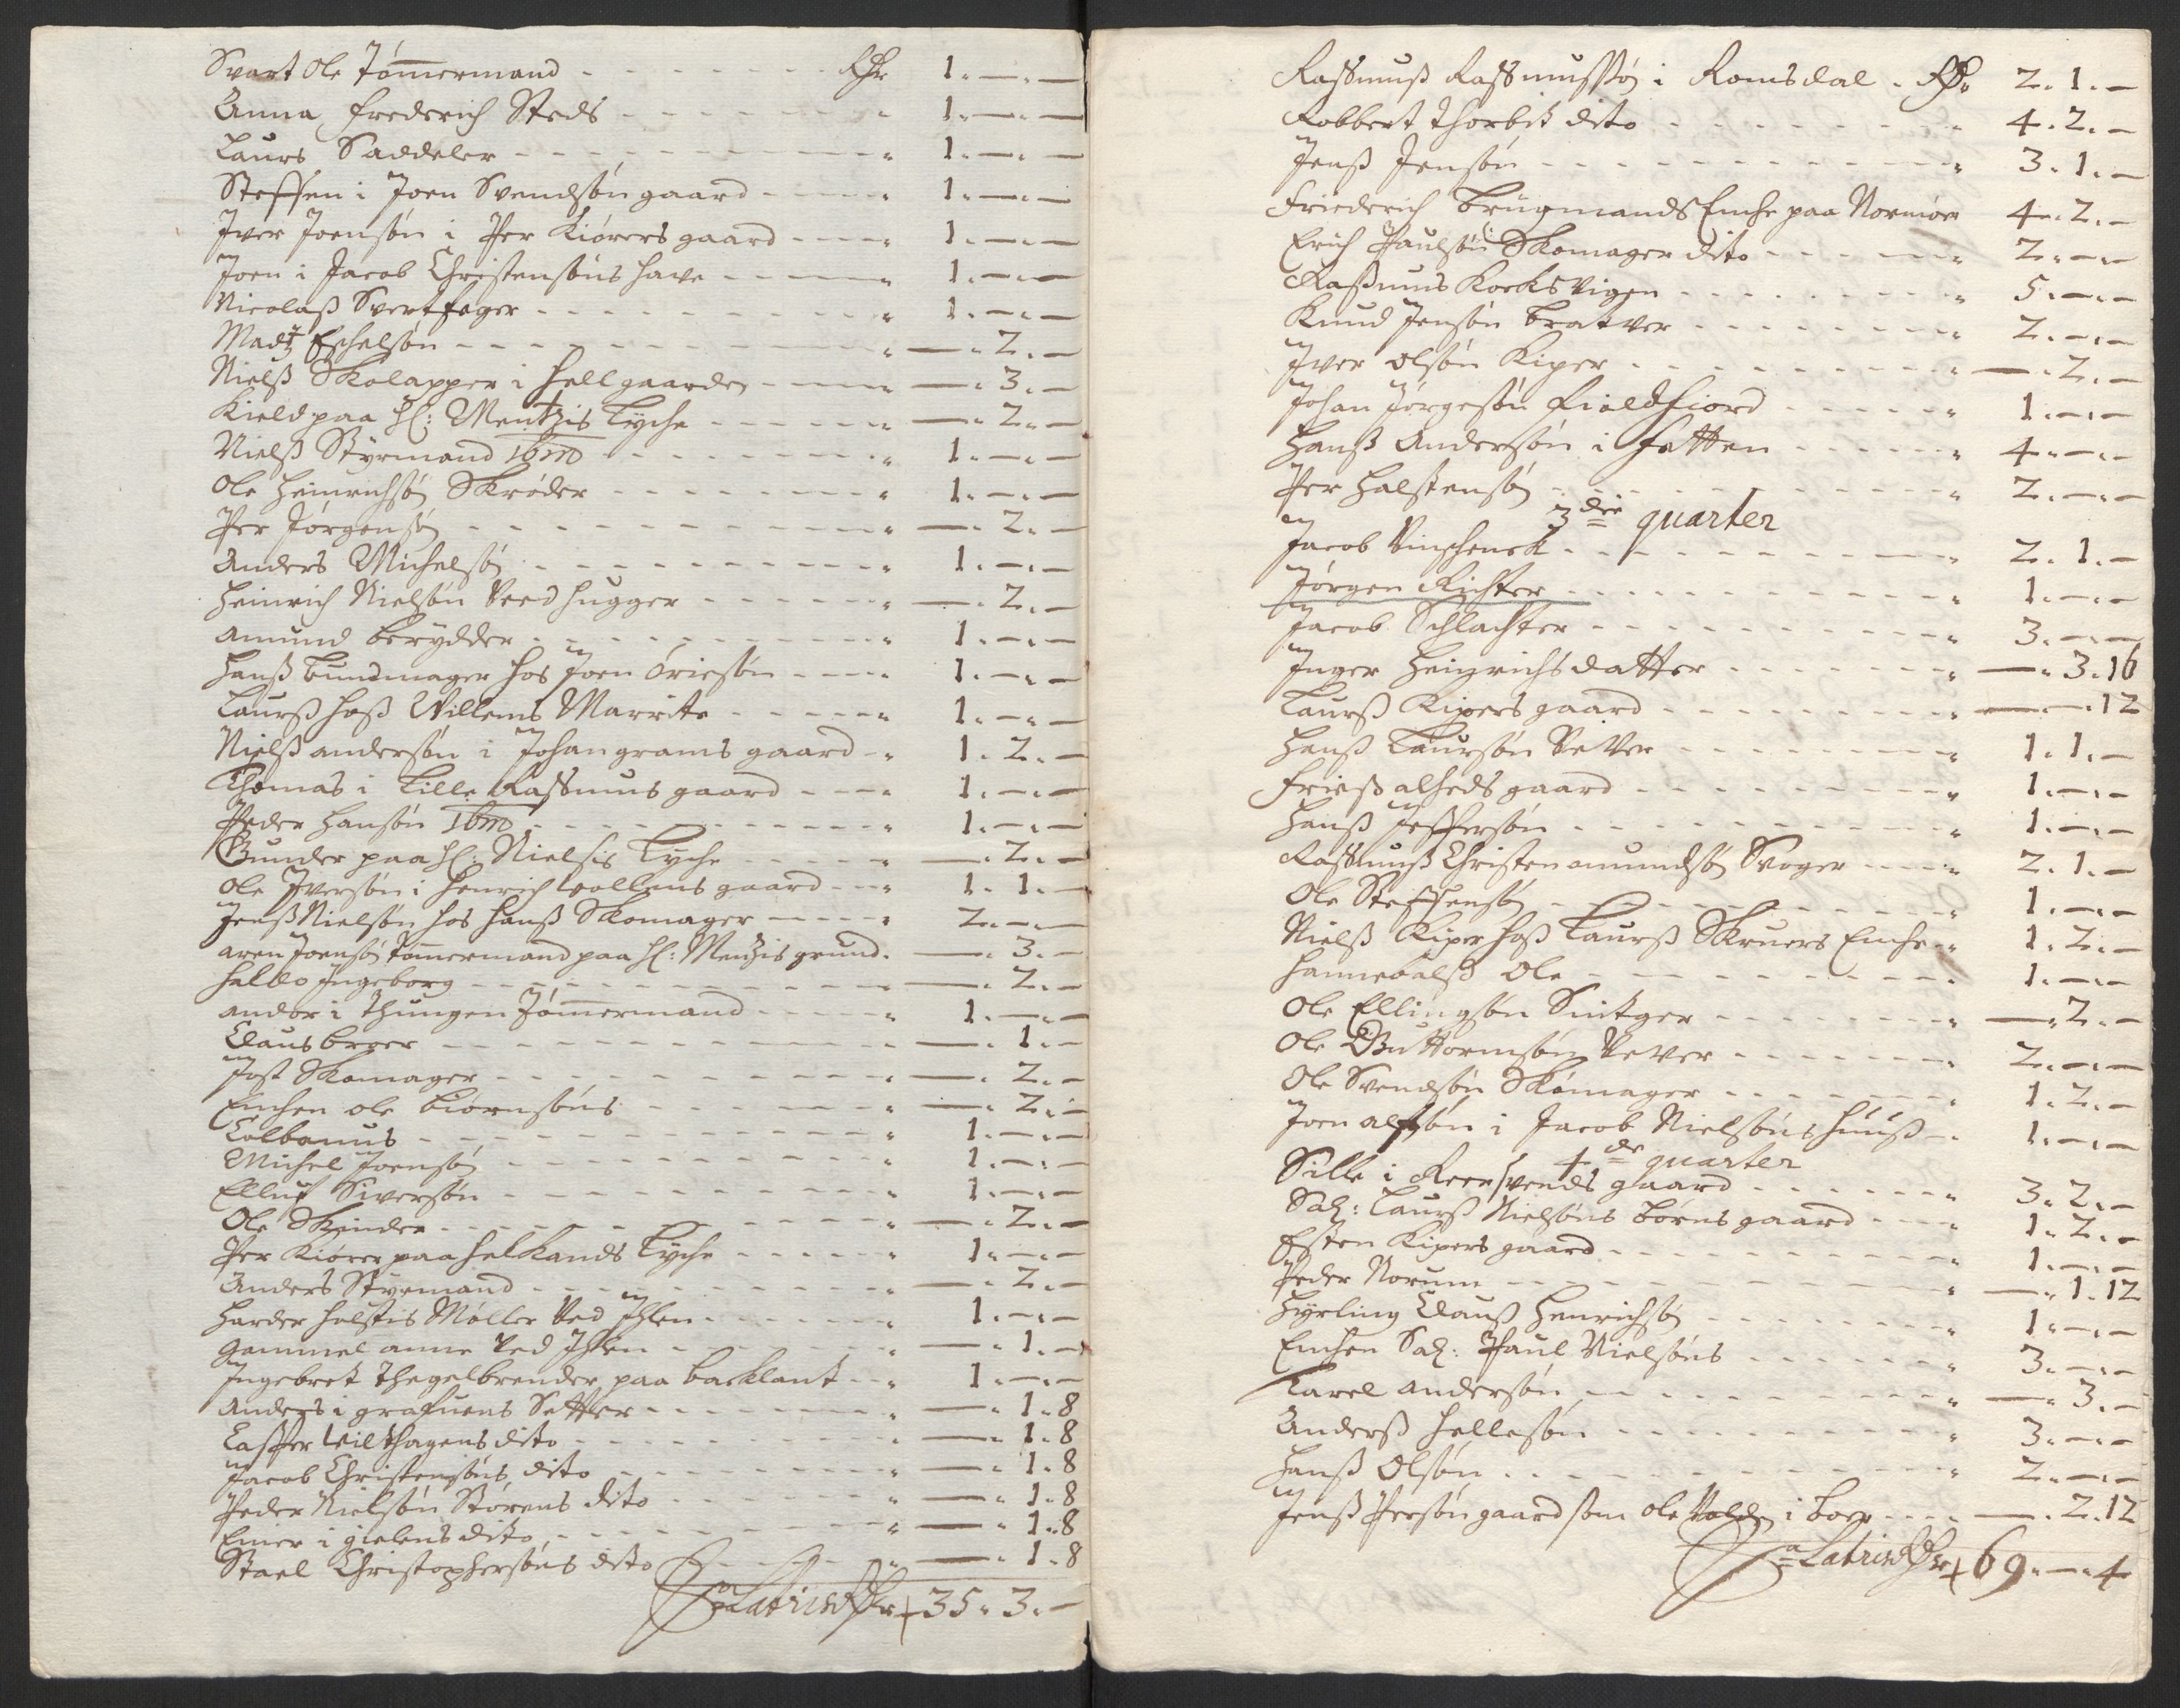 Svart Ole Tömmermand - - - Rdr 1. — . —
Anna Frederich Steds - - - " 1. — . —
Laurs Saddeler - - - " 1. — . —
Steffen i Joen Svendsön gaard - - - " 1. — . —
Iver Joensön i Per Kiörers gaard - - - " 1. — . —
Joen i Jacob Christensöns have - - - " 1. — . —
Nicolaß Svertfeger - - - " 1. — . —
Madtz Eschelsön - - - " — . 2. —
Nielß Skolapper i Hellgaarden - - - " — . 3. —
Kield paa Hl: Mentzis Lyche - - - " — . 2. —
Nielß Styrmand Ibm - - - " 1. — . —
Ole Heinrichsön Skröder - - - " 1. — . —
Per Jörgensön - - - " — . 2. —
Anders Michelsön - - - " 1. — . —
Heinrich Nielsön Veedhugger - - - " — . 2. —
Amund Berydder - - - " 1. — . —
Hanß Bundmager hos Joen Öriesön - - - " 1. — . —
Laurß hoß Willems Marrite - - - " 1. — . —
Nielß Andersön i Johan Grams gaard - " 1. 2. —
Thomas i Lille Rassmus gaard - - - " 1. — . —
Peder Hansön Ibm - - - " 1. — . —
Gunder paa Hl: Nielsis Lyche - - - " — . 2. —
Ole Iversön i Henrich Wollems gaard - - - " 1. 1. —
Jenß Nielsön hos Hanß Skomager - - - " 2. — . —
Aren Joensön Tömmermand paa Hl: Mentzis grund. — . 3. —
Halbo Ingeborg - - - " — . 2. —
Andor i Thungen Tömmermand - - - " 1. — . —
Claus Broer - - - " — . 1. —
Jost Skomager - - - " — . 2. —
Enchen Ole Biörnsöns - - - " — . 2. —
Colbanus - - - " 1. — . —
Michel Joensön - - - " 1. — . —
Elluf Siversön - - - " 1. — . —
Ole Skinder - - - " — . 2. —
Per Kiörer paa Helkands Lyche - - - " 1. — . —
Anders Styrmand - - - " — . 2. —
Harder Holstis Möller Ved Ihlen - - - " 1. — . —
Gammel Anne Ved Ihlen - - - " — . 1. —
Ingebret Thegelbrender paa Backlant - - " 1. — . —
Anders i Grafuens Setter - - - " — . 1. 8
Casper Wilthagens dito - - - " — . 1. 8
Jacob Christensöns dito - - - " — . 1. 8
Peder Nielsön Störens dito - - - " — . 1. 8
Einer i gielens dito - - - " — . 1. 8
Stael Christophersöns dito - - - " — . 1. 8
Latris Rdr 35. 3. —
Rassmuß Rassmussön i Romsdal . Rdr 2. 1. —
Robbert Thorbit dito - - - " 4. 2. —
Jenß Jensön - - - " 3. 1. —
Friederich Brügmands Enche paa Normöer 4. 2. —
Erich Paulsön Skomager dito - - - " 2. — . —
Raßmus Korksvigen - - - " 5. — . —
Knud Jensön Bratver - - - " 2. — . —
Iver Olsön Kiper - - - " — . 2. —
Johan Jörgesön Fieldfiord - - - " 1. — . —
Hanß Andersön i Hatten - - - " 4. — . —
Per Halstensön - - - " 2. — . —
3die quarter
Jacob Vinschenck - - - " 2. 1. —
Jörgen Richter - - - " 1. — . —
Jacob Schlachter - - - " 3. — . —
Inger Heinrichsdatter - - - " — . 3. 16
Laurß Kipers gaard - - - " — . — . 12
Hanß Laursön Vever - - - " 1. 1. —
Frieß Alheds gaard - - - " 1. — . —
Hanß Jessersön - - - " 1. — . —
Rassmuß Christen Amundsön Svoger - - - " 2. 1. —
Ole Steffensön - - - " 1. — . —
Nielß Kiper hoß Laurß Skruers Enche - " 1. 2. —
Hannebalß Ole - - - " 1. — . —
Ole Ellingsön Snitger - - - " — . 2. —
Ole Guttormsön Vever - - - " 2. — . —
Ole Svendsön Skomager - - - " 1. 2. —
Joen Alfsön i Jacob Nielsöns Huuß - . 1. — . —
4de quarter
Sille i Reer Svends gaard - - - " 3. 2. —
Sal: Laurß Nielsöns Börns gaard - - - " 1. 2. —
Esten Kipers gaard - - - " 1. — . —
Peder Norum - - - " — . 1. 12
Hyrling Clauß Henrichsön - - - " 1. — . —
Enchen Sal: Paul Nielsöns - - - " 3. — . —
Carel Andersön - - - " — . 3. —
Anderß Hellesön - - - " 3. — . —
Hanß Olsön - - - " 2. — . —
Jenß Persön gaard som Ole Volden i boer - - - — . 2. 12
Latris Rdr 69. — . 4